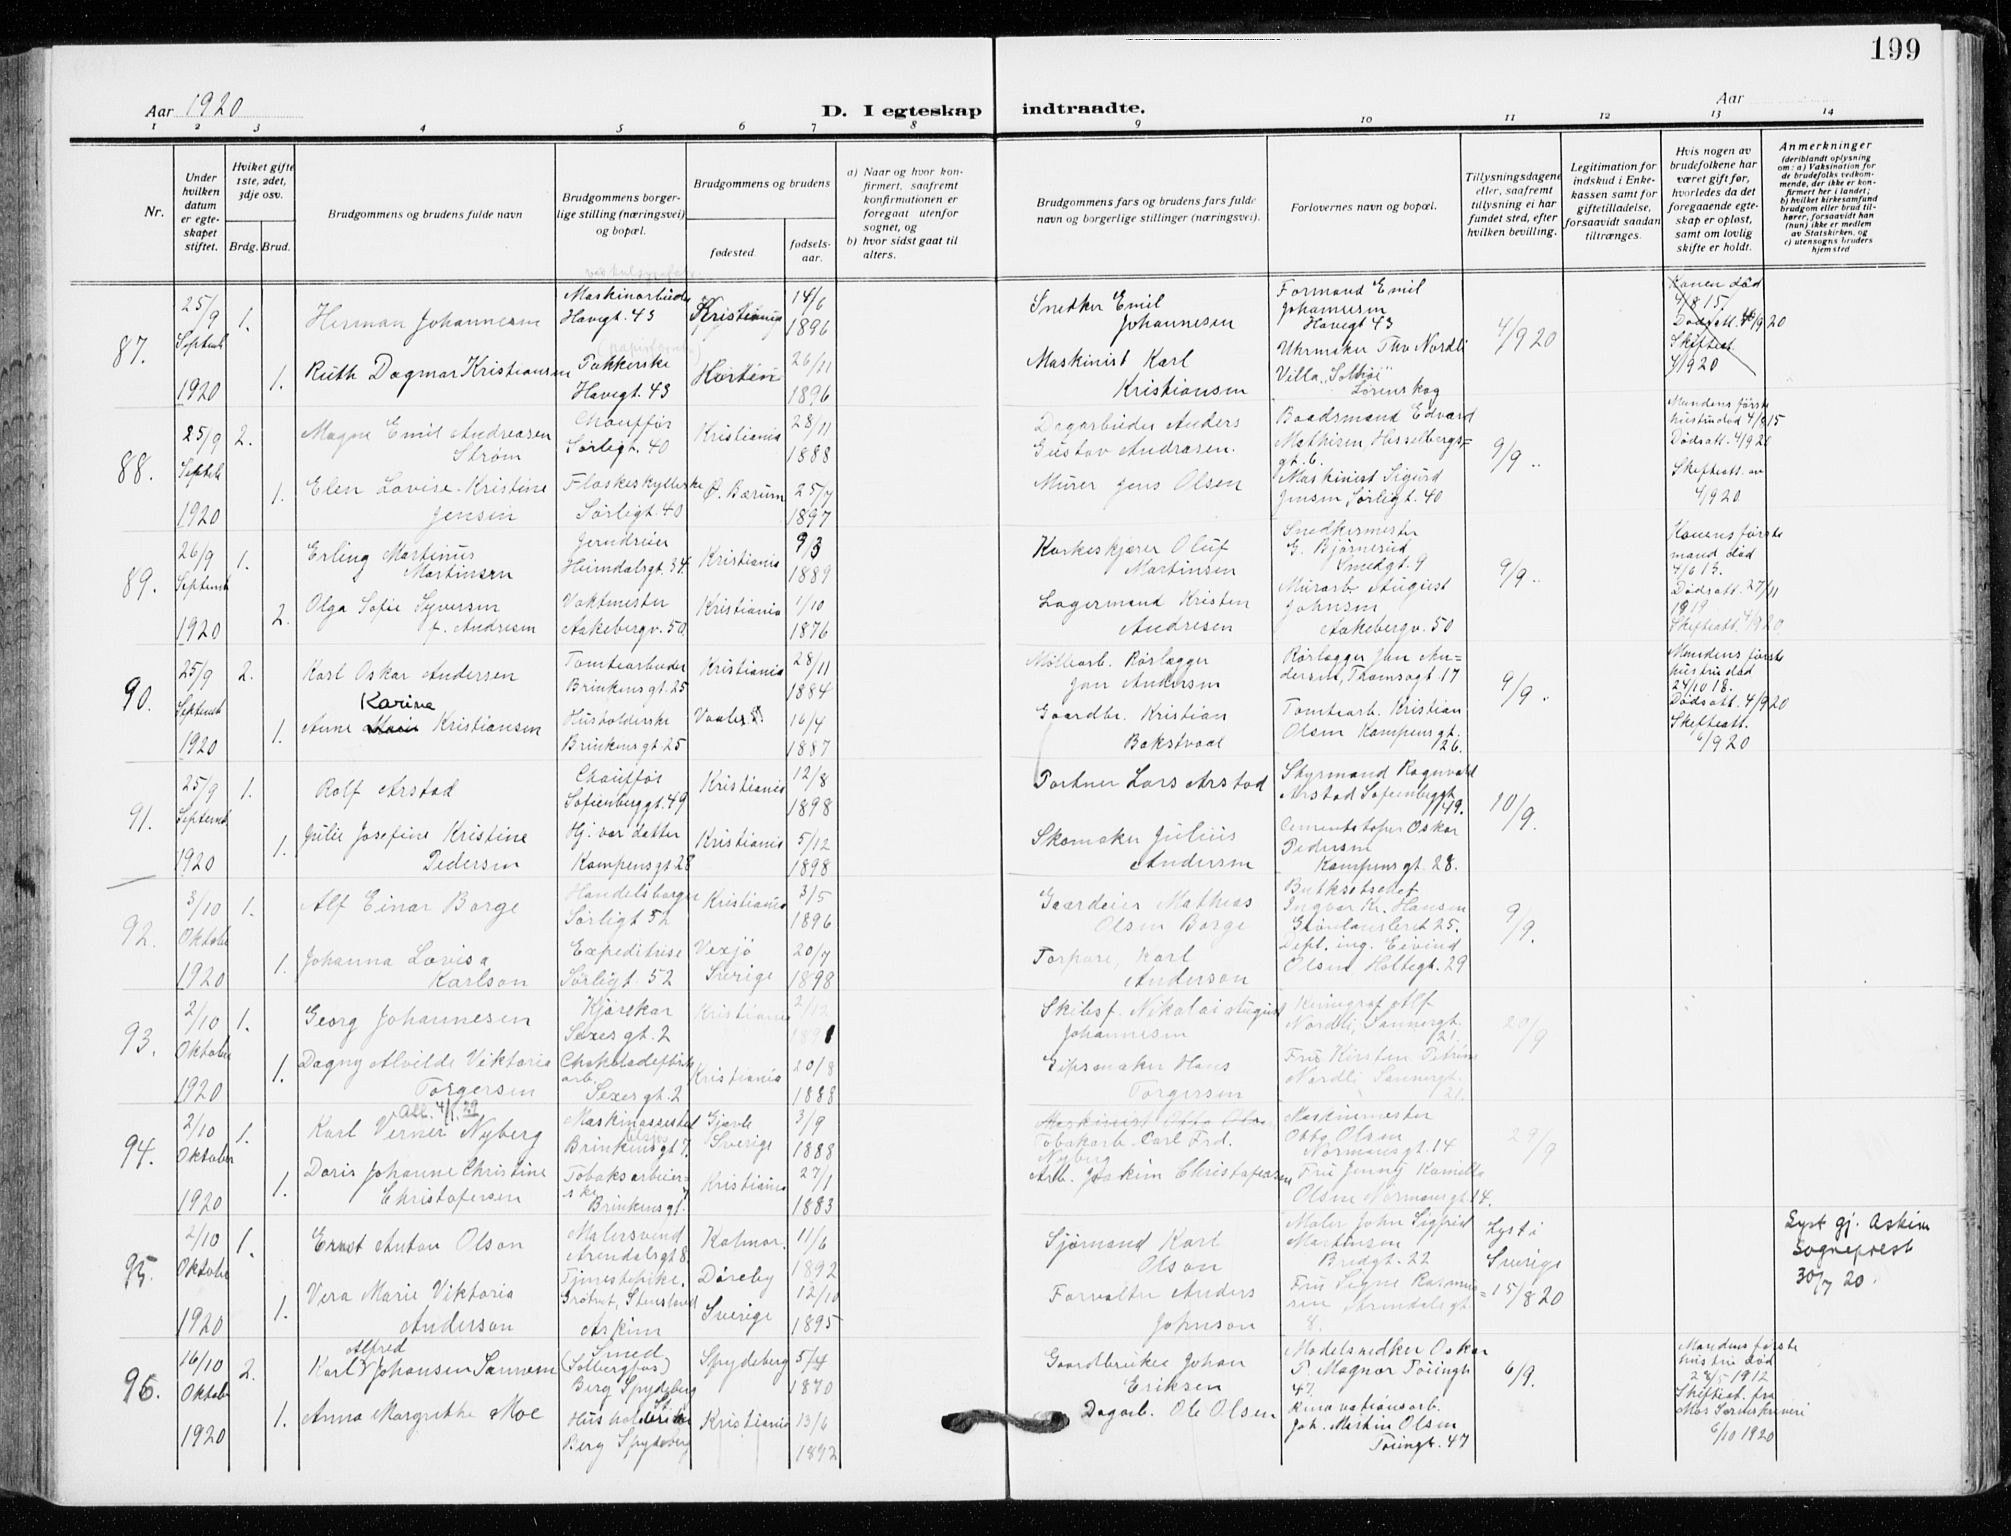 199
Aar 1920
D. I egteskap indtraadte.
Aar
1 2 3 4 5 6 7 8 9 10 11 12 13 14
Nr.
Under hvilken datum er egteskapet stiftet.
Hviket gifte 1ste, 2det, 3dje osv.
Brdg. Brud.
Brudgommens og brudens fulde navn
Brudgommens borgerlige stilling (næringsvei) og bopæl.
Brudgommens og brudens
fødested. fødselsaar.
a) Naar og hvor konfirmert, saafremt konfirmationen er foregaat utenfor sognet, og
b) hvor sidst gaat til alters.
Brudgommens fars og brudens fars fulde navn og borgerlige stillinger (næringsvei).
Forlovernes navn og bopæl.
Tillysningsdagene eller, saafremt tillysning ei har fundet sted, efter hvilken bevilling.
Legitimation for indskud i Enkekassen samt for giftetilladelse, forsaavidt saadan tiltrænges.
Hvis nogen av brudefolkene har været gift før, hvorledes da det foregaaende egteskap er opløst, samt om lovlig skifte er holdt.
Anmerkninger
(deriblandt oplysning om: a) Vaksination for de brudefolks vedkommende, der ikke er konfirmert her i landet; b) hvilket kirkesamfund brudgom eller brud tilhører, forsaavidt han (hun) ikke er medlem av Statskirken, og c) utensogns bruders hjemsted
87. 25/9 Septemb 1920
1. Herman Johannesen Maskinarbeider Havegt. 43 Kristiania 14/6 1896
Snedker Emil Johannesen
Formand Emil Johannesen Havegt 43
4/9 20
Konen død 4/8 15 Dødsatt. 4/9 20 Skifteat 4/9 20
1. Ruth Dagmar Kristiansen Pakkerske Havegt. 43 Horten 26/11 1896
Maskinist Karl Kristiansen
Uhrmaker Thv Nordli Villa "Solhøi" Lørenskog
88. 25/9 Septemb 1920
2. Magne Emil Andreasen Strøm Chauffør Sørligt. 40 Kristiania 28/11 1888
Dagarbeider Anders Gustav Andreasen.
Baadsmand Edvard Mathisen, Hesselbergsgt. 6.
9/9 "
Mandens første hustru død 4/8 15 Dødsatt. 4/9 20 Skifteatt. av 4/9 20
1. Elen Lovise Kristine Jensen Flaskeskyllerske Sørligt. 40 Ø. Bærum 25/7 1897
Murer Jens Olsen
Maskinist Sigurd Jensen Sørligt. 40
89. 26/9 Septemb 1920
1. Erling Martinus Martinsen Jerndreier Heimdalsgt. 34. Kristiania 9/3 1889
Korkeskjærer Oluf Martinsen
Snedkermester E. Bjørnerud Smedgt. 9
9/9 "
Konens første mand død 4/6 13. Dødsatt. 27/11 1919 Skifteatt. 4/9 20
2. Olga Sofie Syversen f. Andresen Vaktmester Aakebergv. 50 Kristiania 1/10 1876
Lagermand Kristen Andresen
Murarb. August Johnsen Aakebergv. 50
90. 25/9 Septemb 1920
2. Karl Oskar Andersen Tomtearbeider Brinkens gt. 25 Kristiania 28/11 1884
Møllearb. Rørlægger Jan Andersen
Rørlægger Jan Andersen, Thomsagt. 17
9/9 "
Mandens første hustru død 24/10 18. Dødsatt. 4/9 20 Skifteatt. 6/9 20
1. Anne Karine Kristiansen Husholderske Brinkens gt. 25 Vaaler 16/4 1887
Gaardbr. Kristian Bakstvaal
Tomtearb. Kristian Olsen Kampens gt. 26.
91. 25/9 Septemb 1920
1. Rolf Arstad Chauffør Sofienberggt. 49 Kristiania 12/8 1898
Portner Lars Arstad
Styrmand Ragnvald Arstad Sofienberggt. 49.
10/9.
1. Julie Josefine Kristine Pedersen Hj. vær. datter Kampens gt 28 Kristiania 5/12 1898
Skomaker Julius Andersen
Cementstøper Oskar Pedersen Kampens gt. 28.
92. 3/10 Oktober 1920
1. Alf Einar Borge Handelsborger Sørligt. 52 Kristiania 3/5 1896
Gaardeier Mathias Olsen Borge
Butikschef Ingvar Kr. Hansen Grønlandsleret 25.
9/9.
1. Johanna Lovisa Karlson Expeditrise Sørligt. 52 Vexjö Sverige 20/7 1898
Torpare, Karl Anderson
Depl. ing. Eivind Olsen Holtegt. 29
93. 2/10 Oktober 1920
1. Georg Johannesen Kjørekar Sexes gt. 2 Kristiania 2/12 1891
Skibsf. Nikolai August Johannesen
Kinograf Alf Nordli, Sannergt. 21.
20/9
1. Dagny Alvilde Viktoria Torgersen Chokoladefbrk arb. Sexes gt. 2 Kristiania 20/8 1888
Gipsmaker Hans Torgersen
Fru Kirsten Petrine Nordli Sannergt. 21.
94. 2/10 Oktober 1920
1. Karl Verner Nyberg Att. 4/1. 29 Brinkens gt 7. Gjavle Sverige 3/9 1888
Maskinist Otto Olsen Tobakarb. Carl Frd. Nyberg
Maskinmester Otto Olsen Normans gt. 14
29/9
1. Doris Johanne Christine Christofersen Tobaksarbeierske Brinkens gt. 7 Kristiania 27/1 1883
Arb. Joakim Christofersen
Fru Jenny Kamilla Olsen Normans gt. 14.
95. 2/10 Oktober 1920
1. Ernst Anton Olson Malersvend Arendalsgt 8. Kalmar. 11/6 1892
Sjømand Karl Olson
Maler John Sigfrid Martinsen Bredgt. 22
Lyst i Sverige 15/8 20
Lyst gj. Askim Sogneprest 30/7 20.
1. Vera Marie Viktoria Anderson Tjenestepike. Grøtvet, Stenstved Askim Döreby Sverige 12/10 1895
Forvalter Anders Johnson
Fru Signe Rasmussen Arendalsgt 8.
96. 16/10 Oktober 1920
2. Karl Alfred Johansen Sannem Smed (Solbergfos) Berg Spydeberg Spydeberg 5/4 1870
Gaardbruker Johan Eriksen
Modelsnedker Oskar P. Magnor Tøiengt 47.
6/9.
Mandens første hustru død 28/5 1912 Skifteat. fra Mos Sorenskriveri 6/10 1920
1. Anna Margrethe Moe Husholderske Berg Spydeberg Kristiania 13/6 1892
Dagarb. Ole Olsen
Joh. Martin Olsen Tøiengt. 47